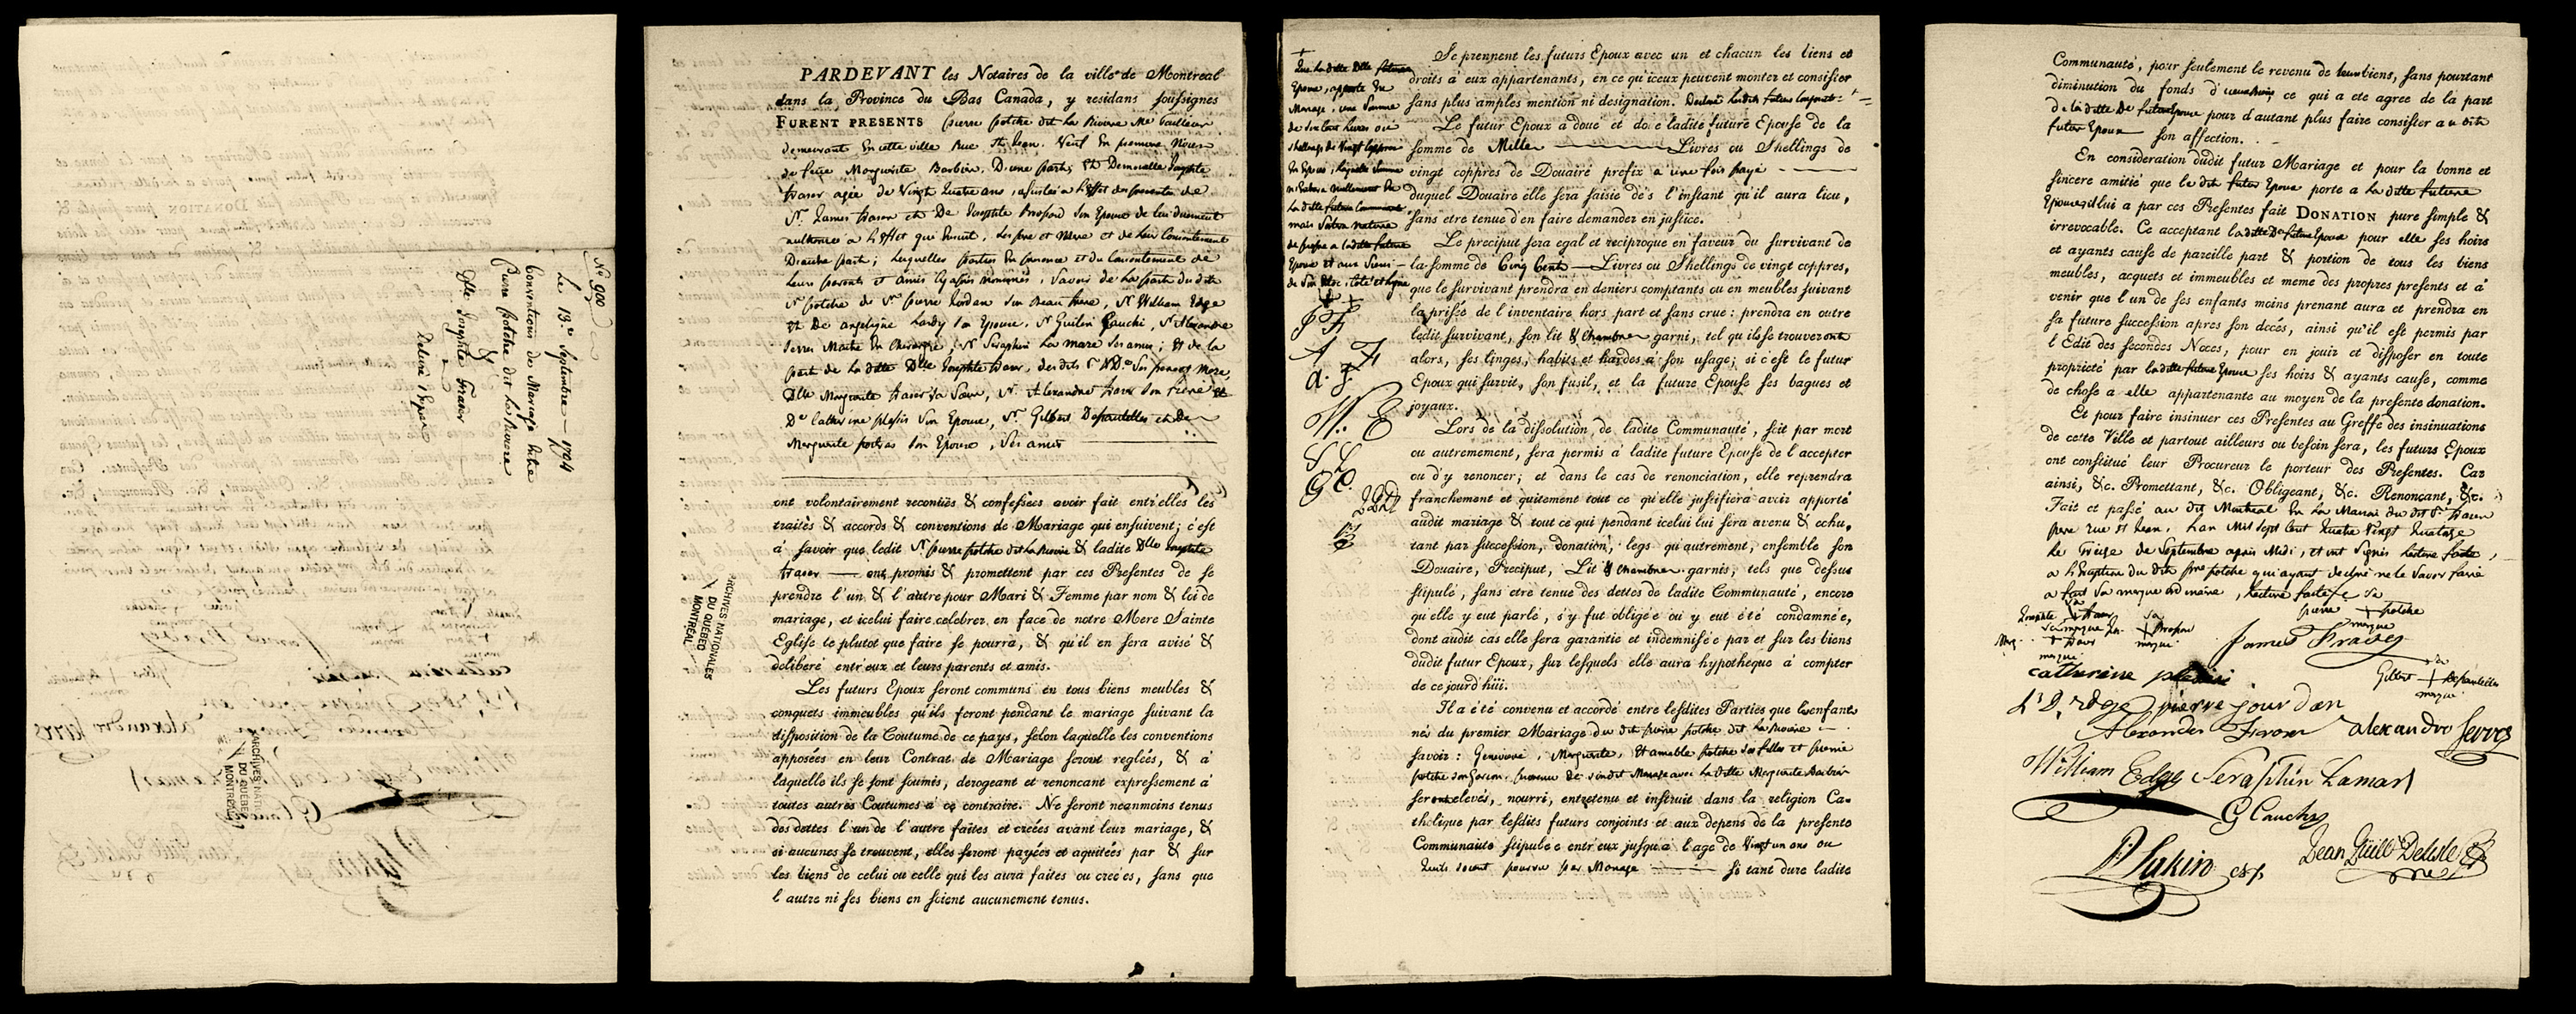 No 900
Le 13.e Septembre — 1794
Conventions de Mariage Entre
Pierre potche dit La Riviere
&
Dlle Josephte Fraser
Delivré Expedn
ARCHIVES NATIONALES
DU QUÉBEC
MONTRÉAL
PARDEVANT les Notaires de la ville de Montreal
dans la Province du Bas Canada, y residans soussignes
FURENT PRESENTS pierre potche dit La Riviere Me Tailleur
demeurant En cette ville Rue St Jean. Veuf En premiere Noces
de feüe Marguerite Barbier, D'une part; Et Demoiselle Josephte
fraser agée de Vingt Quatre ans, assistée a l'Effet des presentes de
Sr. James fraser et De Josephte Son Epouse de lui duement
authorisée a L'Effet qui Ensuit, Ses pere et Mere et de Leur Consentement
D'autre part; Lesquelles parties En presence et du Consentement de
Leurs parents et amis Cy après nommés, Savoir de La part du dit
Sr potche de Sr. pierre Jordan Son Beau frere, Sr. William Edge
et De angelique Lardy Son Epouse, Sr Guilin Cauchi, Sr Alexandre
Serres Maitre En Chirurgie, Sr Seraphin La mare Ses amis; Et de la
part de La ditte Dlle Josephte fraser, des dits Sr & De Ses pere et Mere,
Dlle Marguerite fraser Sa Sœur, Sr. Alexandre fraser Son frere et
De Catherine plessis Son Epouse, Sr. Gilbert Desautelles et De
Marguerite poitras Son Epouse, Ses amis
ont volontairement reconües & confessées avoir fait entr'elles les
traités & accords & conventions de Mariage qui ensuivent; c'est
à savoir que ledit Sr. pierre potche dit La Riviere & ladite Dlle Josephte
fraser — ont promis & promettent par ces Presentes de se
prendre l'un & l'autre pour Mari & Femme par nom & loi de
mariage, et icelui faire celebrer en face de notre Mere Sainte
Eglise le plutot que faire se pourra, & qu'il en sera avisé &
deliberé entr'eux et leurs parents et amis.
Les futurs Epoux seront communs en tous biens meubles &
conquets immeubles qu'ils feront pendant le mariage suivant la
disposition de la Coutume de ce pays, selon laquelle les conventions
apposées en leur Contrat de Mariage seront reglées, & à
laquelle ils se sont soumis, derogeant et renoncant expressement à
toutes autres Coutumes à ce contraire. Ne seront neanmoins tenus
des dettes l'un de l'autre faites et créées avant leur mariage, &
si aucunes se trouvent, elles seront payées et aquitées par & sur
les biens de celui ou celle qui les aura faites ou creées, sans que
l'autre ni ses biens en soient aucunement tenus.
ARCHIVES NATIONALES
DU QUÉBEC
MONTRÉAL
Se prennent les futurs Epoux avec un et chacun les biens et
droits à eux appartenants, en ce qu'iceux peuvent monter et consister
sans plus amples mention ni designation. Declaré lesdits futurs Conjoints
Le futur Epoux a doué et doue ladite future Epouse de la
somme de Mille — Livres ou Shellings de
vingt coppres de Douaire prefix à une fois payé —
duquel Douaire elle sera saisie dès l'instant qu'il aura lieu,
sans etre tenue d'en faire demander en justice.
Le preciput sera egal et reciproque en faveur du survivant de
la somme de Cinq Cent — Livres ou Shellings de vingt coppres,
que le survivant prendra en deniers comptants ou en meubles suivant
la prisée de l'inventaire hors part et sans crue: prendra en outre
ledit survivant, son lit & Chambre garni, tel qu'ils se trouveront
alors, ses linges, habits et hardes à son usage; si c'est le futur
Epoux qui survit, son fusil, et la future Epouse ses bagues et
joyaux.
Lors de la dissolution de ladite Communauté, soit par mort
ou autremement, sera permis à ladite future Epouse de l'accepter
ou d'y renoncer; et dans le cas de renonciation, elle reprendra
franchement et quitement tout ce qu'elle justifiera avoir apporté
audit mariage & tout ce qui pendant icelui lui sera avenu & echu,
tant par succession, donation, legs qu'autrement, ensemble son
Douaire, Preciput, Lit & Chambre garnis, tels que dessus
stipulé, sans etre tenue des dettes de ladite Communauté, encore
qu'elle y eut parlé, s'y fut obligée ou y eut été condamnée,
dont audit cas elle sera garantie et indemnisée par et sur les biens
dudit futur Epoux, sur lesquels elle aura hypotheque à compter
de ce jourd'hüi.
Il a été convenu et accordé entre lesdites Parties que les enfants
nés du premier Mariage du dit pierre potche dit La Riviere —
savoir: Genevieve, Marguerite, Et amable potche Ses filles et pierre
potche Son Garcon, provenu de Son dit Mariage avec La ditte Margueritte Barbier
seront elevés, nourri, entretenu et instruit dans la religion Ca-
tholique par lesdits futurs conjoints et aux depens de la presente
Communauté stipulée entr'eux jusqu'à l'age de Vingt un ans ou
quils soient pourvu par Mariage — si tant dure ladite
Que La ditte Dlle future
Epouse, apporte En
Mariage, une Somme
de Six Cent Livres ou
Shellings de Vingt Coppres
En Especes, laquelle Somme
n'Entrera nullement En
La ditte future Communauté
mais Sera nature
de propre a Laditte future
Epouse et aux Siens
de Son Estoc, Coté et Ligne
J F
A F
a. S.
W. E
S L
G C.
Communauté, pour seulement le revenu de leurs biens, sans pourtant
diminution du fonds d'iceux biens, ce qui a ete agree de la part
de la ditte De future Epouse pour d'autant plus faire consister au dit
futur Epoux — son affection.
En consideration dudit futur Mariage et pour la bonne et
sincere amitié que le dit futur Epoux porte a La ditte future
Epouse, il lui a par ces Presentes fait DONATION pure simple &
irrevocable. Ce acceptant laditte De future Epouse pour elle ses hoirs
et ayants cause de pareille part & portion de tous les biens
meubles, acquets et immeubles et meme des propres presents et à
venir que l'un de ses enfants moins prenant aura et prendra en
sa future succession apres son decés, ainsi qu'il est permis par
l'Edit des secondes Noces, pour en jouir et disposer en toute
proprieté par laditte future Epouse ses hoirs & ayants cause, comme
de chose à elle appartenante au moyen de la presente donation.
Et pour faire insinuer ces Presentes au Greffe des insinuations
de cette Ville et partout ailleurs ou besoin sera, les futurs Epoux
ont constitué leur Procureur le porteur des Presentes. Car
ainsi, &c. Promettant, &c. Obligeant, &c. Renonçant, &c.
Fait et passé au dit Montreal En La Maison du dit Sr. fraser
pere rue St Jean. L'an Mil Sept Cent Quatre Vingt Quatorze
Le Treize de Septembre après Midi, et ont Signés Lecture faitte,
a L'Exception du dit pre potche qui ayant declaré ne le Savoir faire
a fait Sa marque ordinaire, Lecture faitte
sa
pierre + potche
marque
Josephte + fraser
sa marque
sa
+
marque
James Fraser
catherine plessis
sa
Gilbert + Desautelles
marque
pierre jourdan
Alexander Fraser alexandre Serres
William Edge Seraphin Lamar
G Cauchy
P Lukin
Jean Guill Delisle